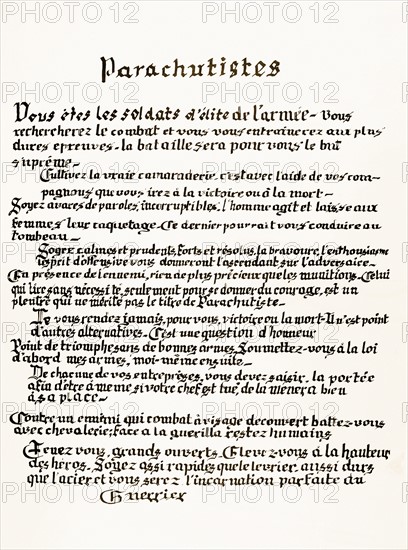 Parachutistes
Vous êtes les soldats d'élite de l'armée - Vous
rechercherez le combat et vous vous entraînerez aux plus
dures epreuves - la bataille sera pour vous le but
suprême -
Cultivez la vraie camaraderie, c'est avec l'aide de vos com-
pagnons que vous irez à la victoire ou à la mort -
Soyez avares de paroles, incorruptibles. l'homme agit et laisse aux
femmes leur caquetage - Ce dernier pourrait vous conduire au
tombeau -
Soyez calmes et prudents, forts et résolus, la bravoure, l'enthousiasme
l'esprit d'offensive vous donneront l'ascendant sur l'adversaire -
En présence de l'ennemi, rien de plus précieux que les munitions - Celui
qui tire sans nécessité, seulement pour se donner du courage, est un
pleutre qui ne mérite pas le titre de Parachutiste -
Ne vous rendez jamais, pour vous, victoire ou la mort - Il n'est point
d'autres alternatives - C'est une question d'honneur
Point de triomphe sans de bonnes armes. Soumettez-vous à la loi
d'abord mes armes, moi-même ensuite -
De chacune de vos entreprises, vous devez saisir, la portée
afin d'être à même si votre chef est tué, de la mener à bien
à sa place -
Contre un ennemi qui combat à visage decouvert battez-vous
avec chevalerie; face a la guerilla restez humains
Tenez vous, grands ouverts. Elevez-vous à la hauteur
des héros. Soyez aussi rapides que le levrier, aussi durs
que l'acier et vous serez l'incarnation parfaite du
Guerrier
PHOTO12